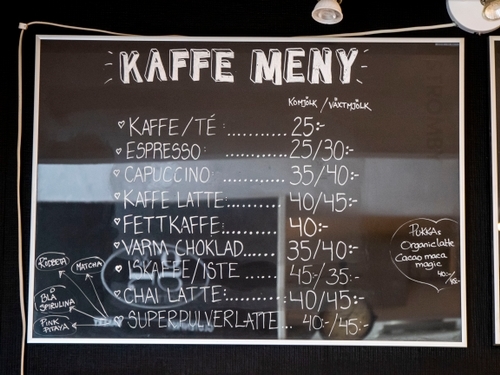 KAFFE MENY
KOMJÖLK / VÄXTMJÖLK
KAFFE/TÉ:.......... 25:-
ESPRESSO: .......... 25/30:-
CAPUCCINO: .......... 35/40:-
KAFFE LATTE: .......... 40/45:-
FETTKAFFE: .......... 40:-
VARM CHOKLAD...... 35/40:-
ISKAFFE/ISTE ...... 45:-/35:-
CHAI LATTE:.......... 40/45:-
SUPERPULVERLATTE... 40:-/45:-
RÖDBETA
MATCHA
BLÅ
SPIRULINA
PINK
PITAYA
PUKKAs
Organic latte
Cacao maca
magic
40:-